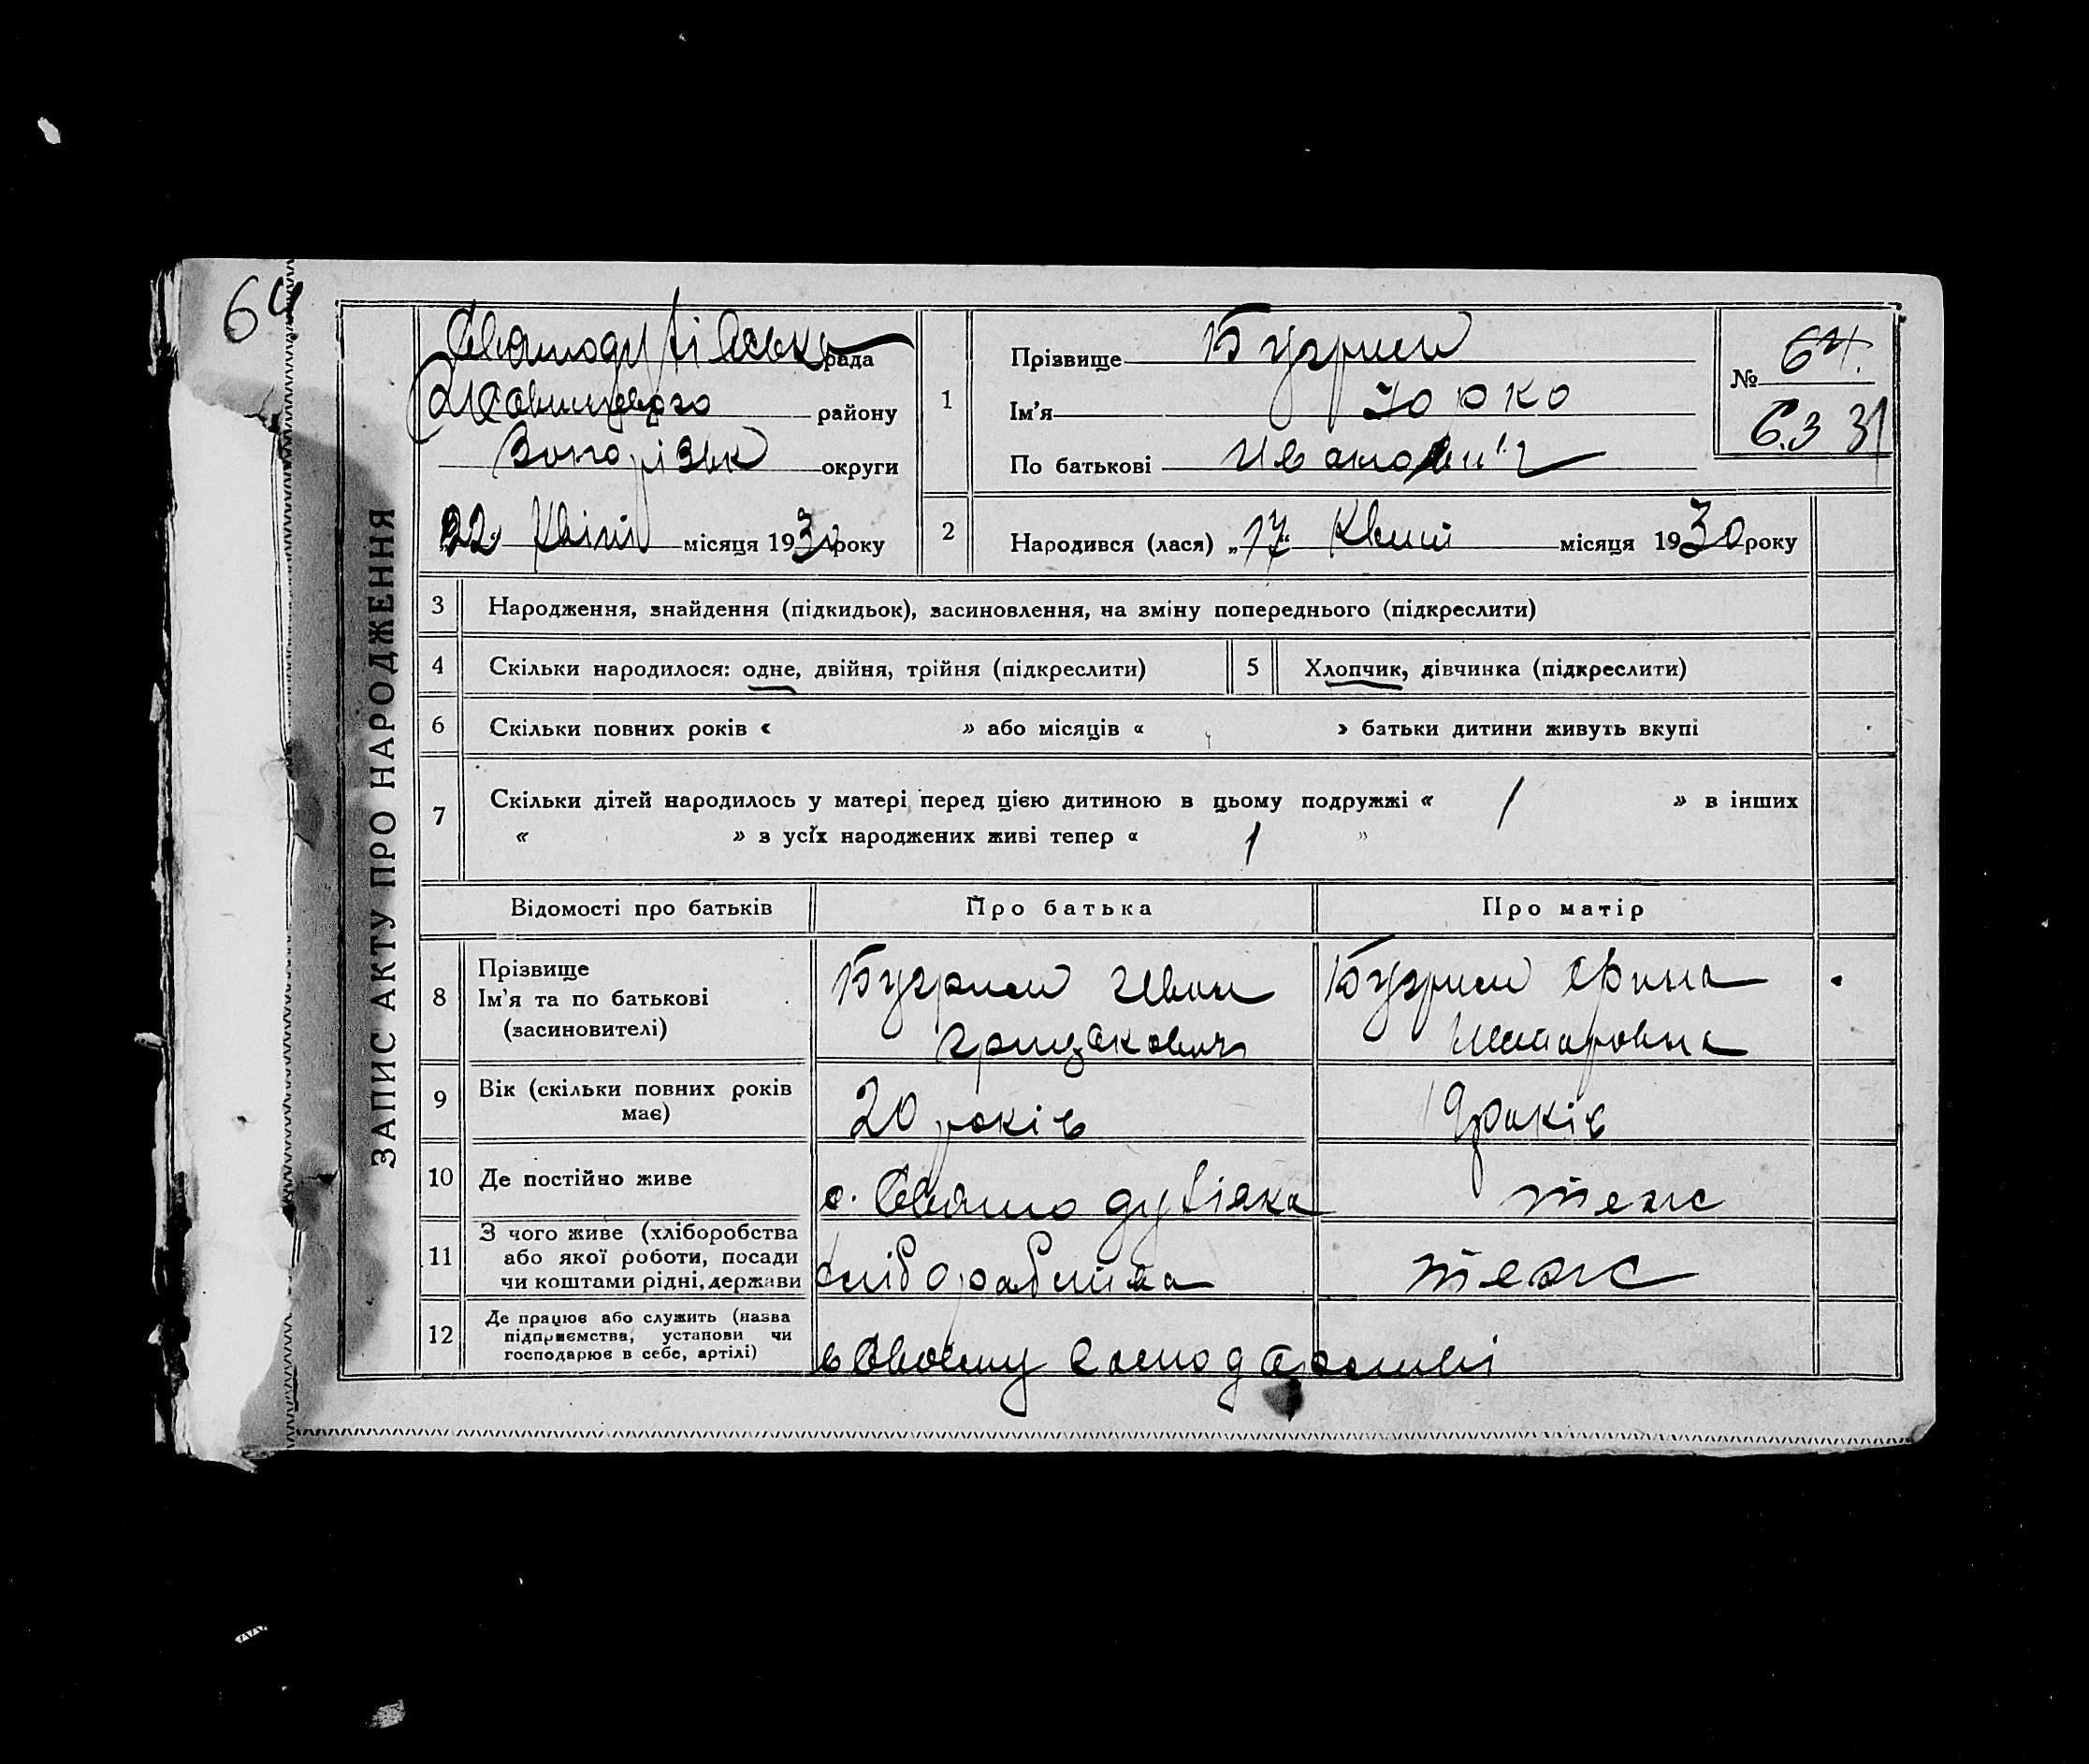 64
ЗАПИС АКТУ ПРО НАРОДЖЕННЯ
рада
району
округи
22 місяця 193 року
1
Прізвище Бугрим
Ім'я Юрко
По батькові Иванович
№ 64.
6.3 31
2
Народився (лася) „17" Квітн місяця 1930 року
3 Народження, знайдення (підкидьок), засиновлення, на зміну попереднього (підкреслити)
4 Скільки народилося: одне, двійня, трійня (підкреслити)
5 Хлопчик, дівчинка (підкреслити)
6 Скільки повних років « » або місяців « » батьки дитини живуть вкупі
7 Скільки дітей народилось у матері перед цією дитиною в цьому подружжі « 1 » в інших
« » з усіх народжених живі тепер « 1 »
Відомості про батьків Про батька Про матір
8 Прізвище
Ім'я та по батькові
(засиновителі)
Бугрим Иван
Бугрим
9 Вік (скільки повних років
має)
20 років
19 років
10 Де постійно живе
с.
теж
11 З чого живе (хліборобства
або якої роботи, посади
чи коштами рідні, держави
теж
12 Де працює або служить (назва
підприємства, установи чи
господарює в себе, артілі)
в своєму господарстві